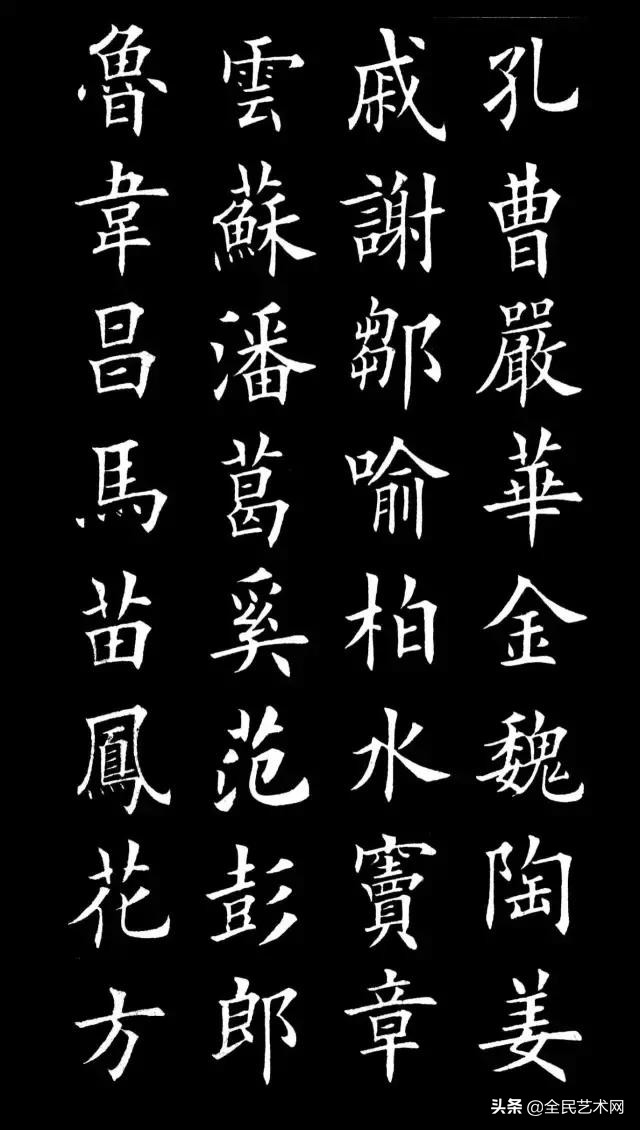 孔曹嚴華金魏陶姜
戚謝鄒喻柏水竇章
雲蘇潘葛奚范彭郎
魯韋昌馬苗鳳花方
头条 @全民艺术网